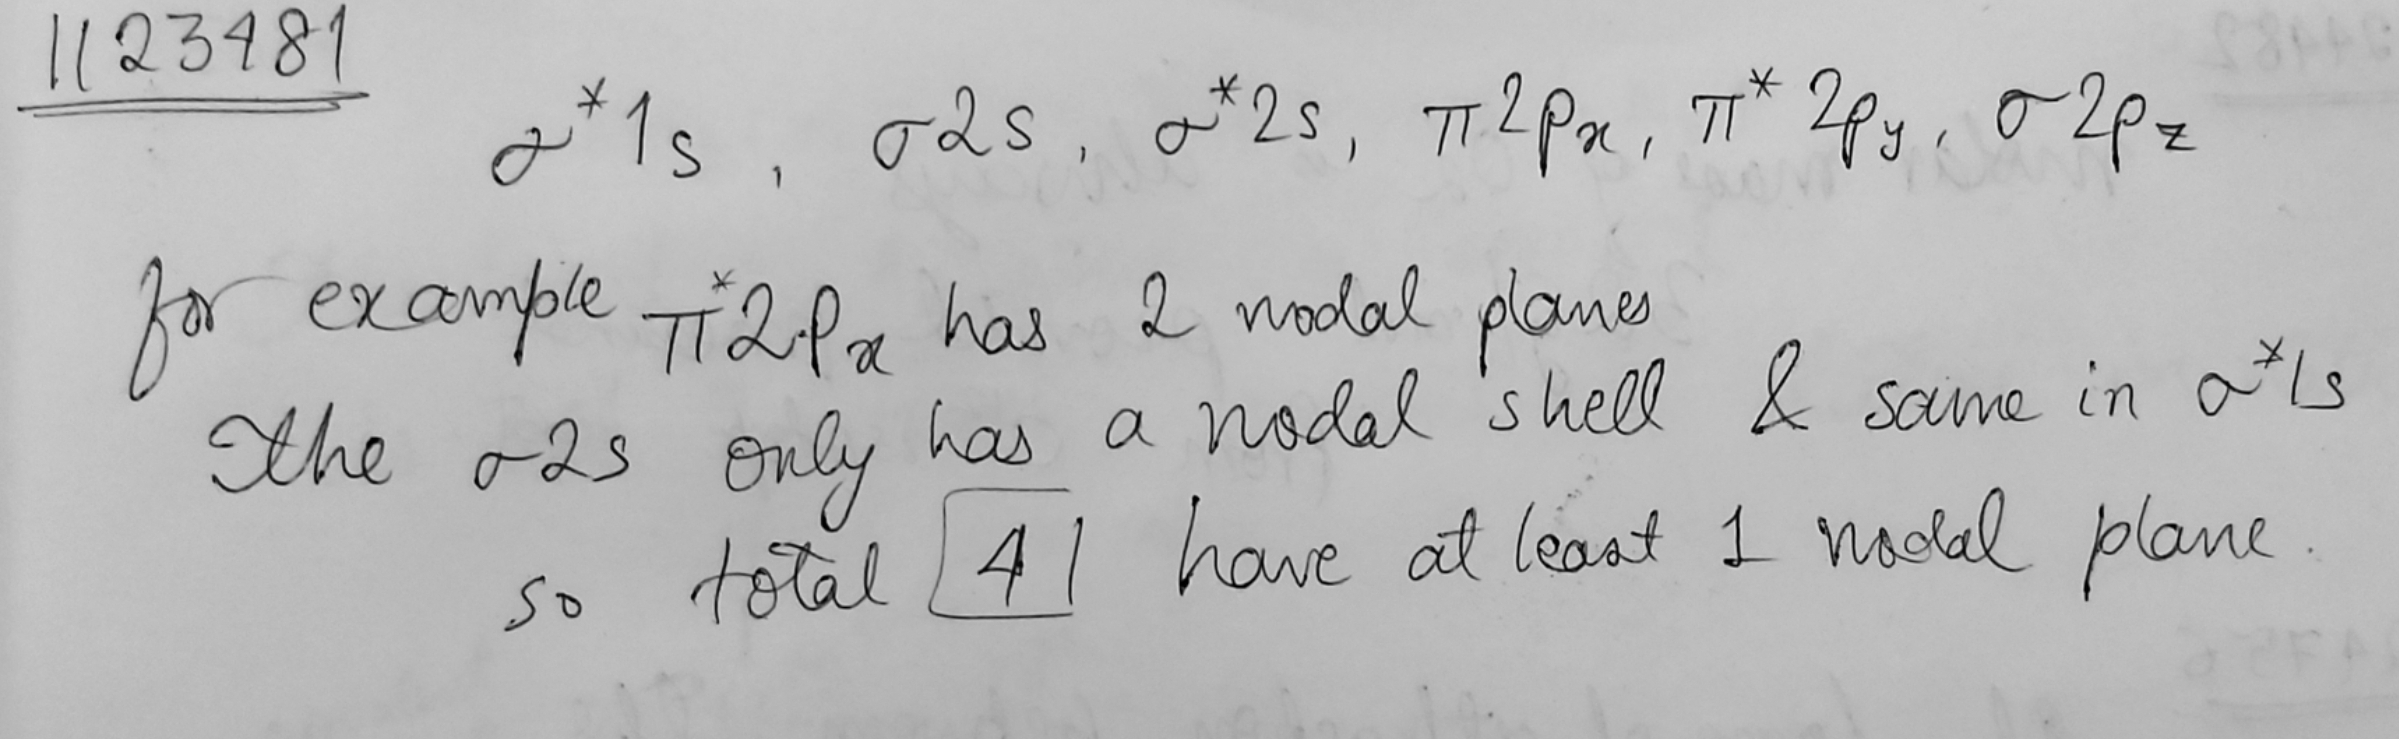 1123481
σ*1s, σ2s, σ*2s, π2px, π*2py, σ2pz
for example π*2px has 2 nodal planes
The σ2s only has a nodal shell & same in σ*1s
so total 4 have at least 1 nodal plane.